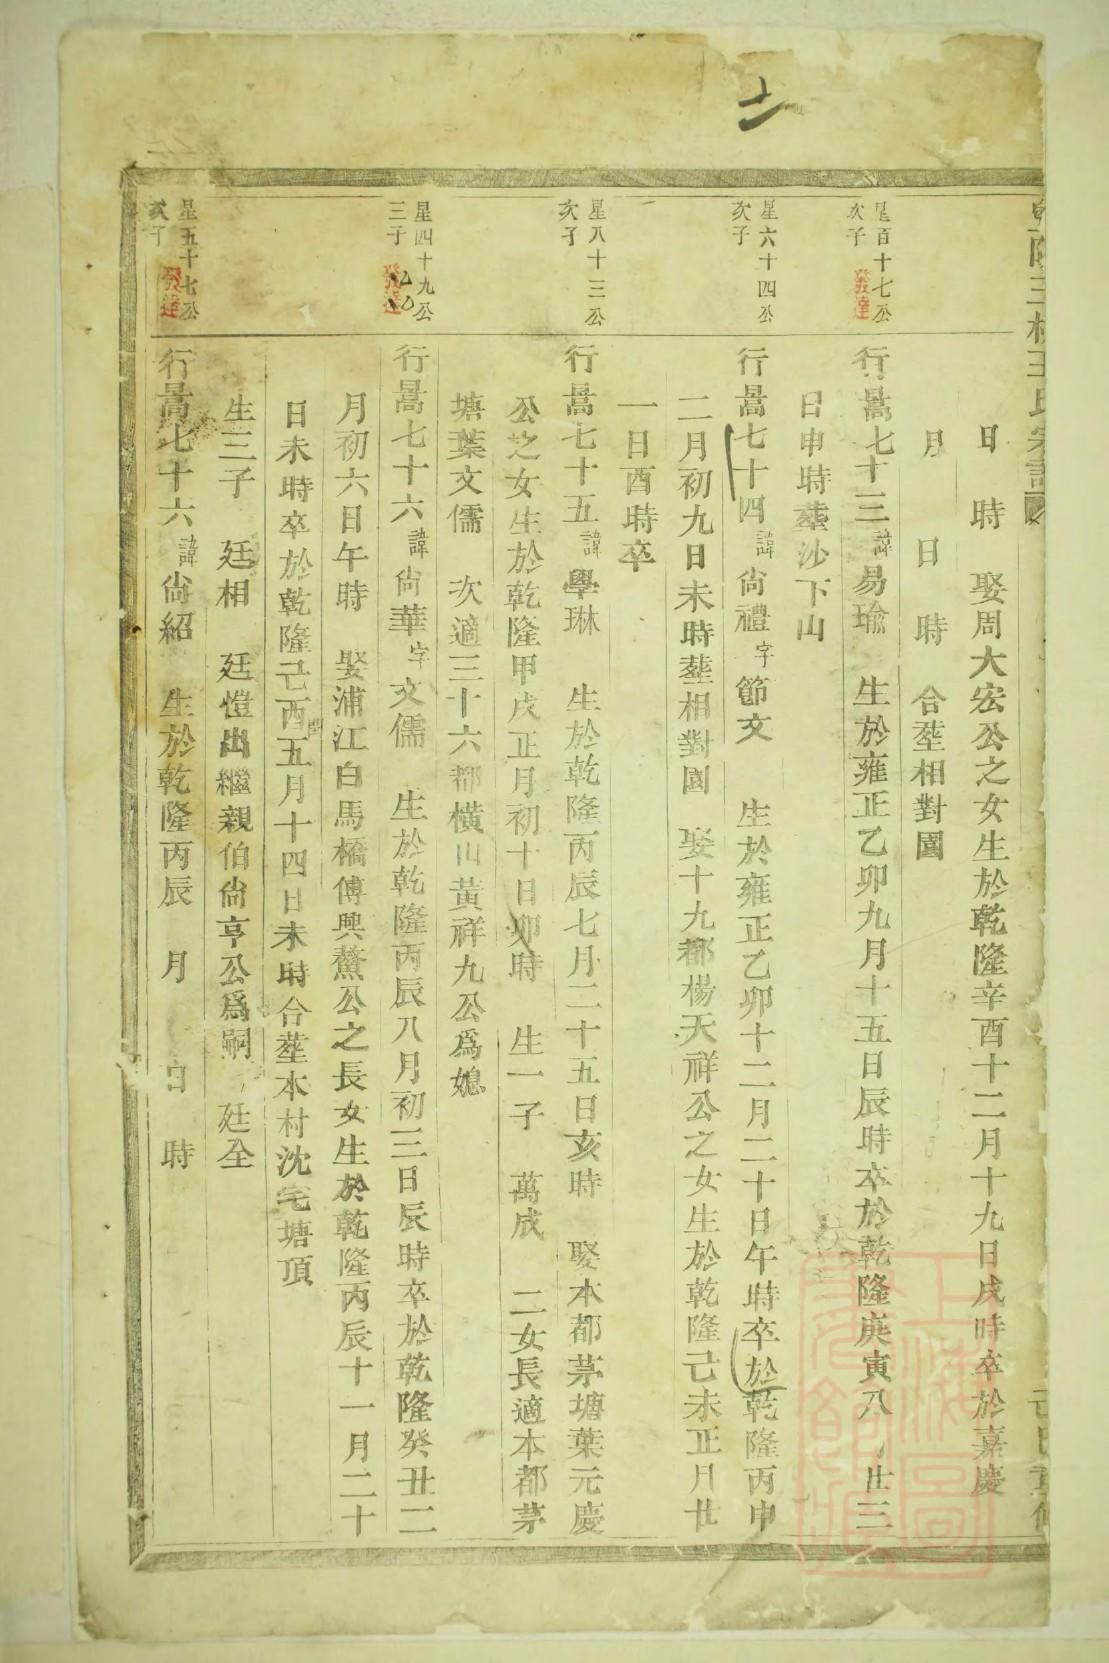 士
日　時　娶周大宏公之女生於乾隆辛酉十二月十九日戌時卒於嘉慶
月　日　時　合塟相對園
星百十七公
次子
發達
行暠七十三諱易瑜　生於雍正乙卯九月十五日辰時卒於乾隆庚寅八月廿三
日申時塟沙下山
星六十四公
次子
行暠七十四諱尙禮字節文　生於雍正乙卯十二月二十日午時卒於乾隆丙申
二月初九日未時塟相對園　娶十九都楊天祥公之女生於乾隆己未正月廿
一日酉時卒
星八十三公
次子
行暠七十五諱學琳　生於乾隆丙辰七月二十五日亥時　娶本都茅塘葉元慶
公之女生於乾隆甲戌正月初十日卯時　生一子　萬成　二女長適本都茅
塘葉文儒　次適三十六都橫山黃祥九公爲媳
星四十九公
三子
發達
行暠七十六諱尙華字文儒　生於乾隆丙辰八月初三日辰時卒於乾隆癸丑二
月初六日午時　娶浦江白馬橋傅興鰲公之長女生於乾隆丙辰十一月二十
日未時卒於乾隆己酉閏五月十四日未時合塟本村沈宅塘頂
生三子　廷相　廷愷出繼親伯尙亨公爲嗣　廷全
星五十七公
次子
發達
行暠七十六諱尙紹　生於乾隆丙辰　月　日　時